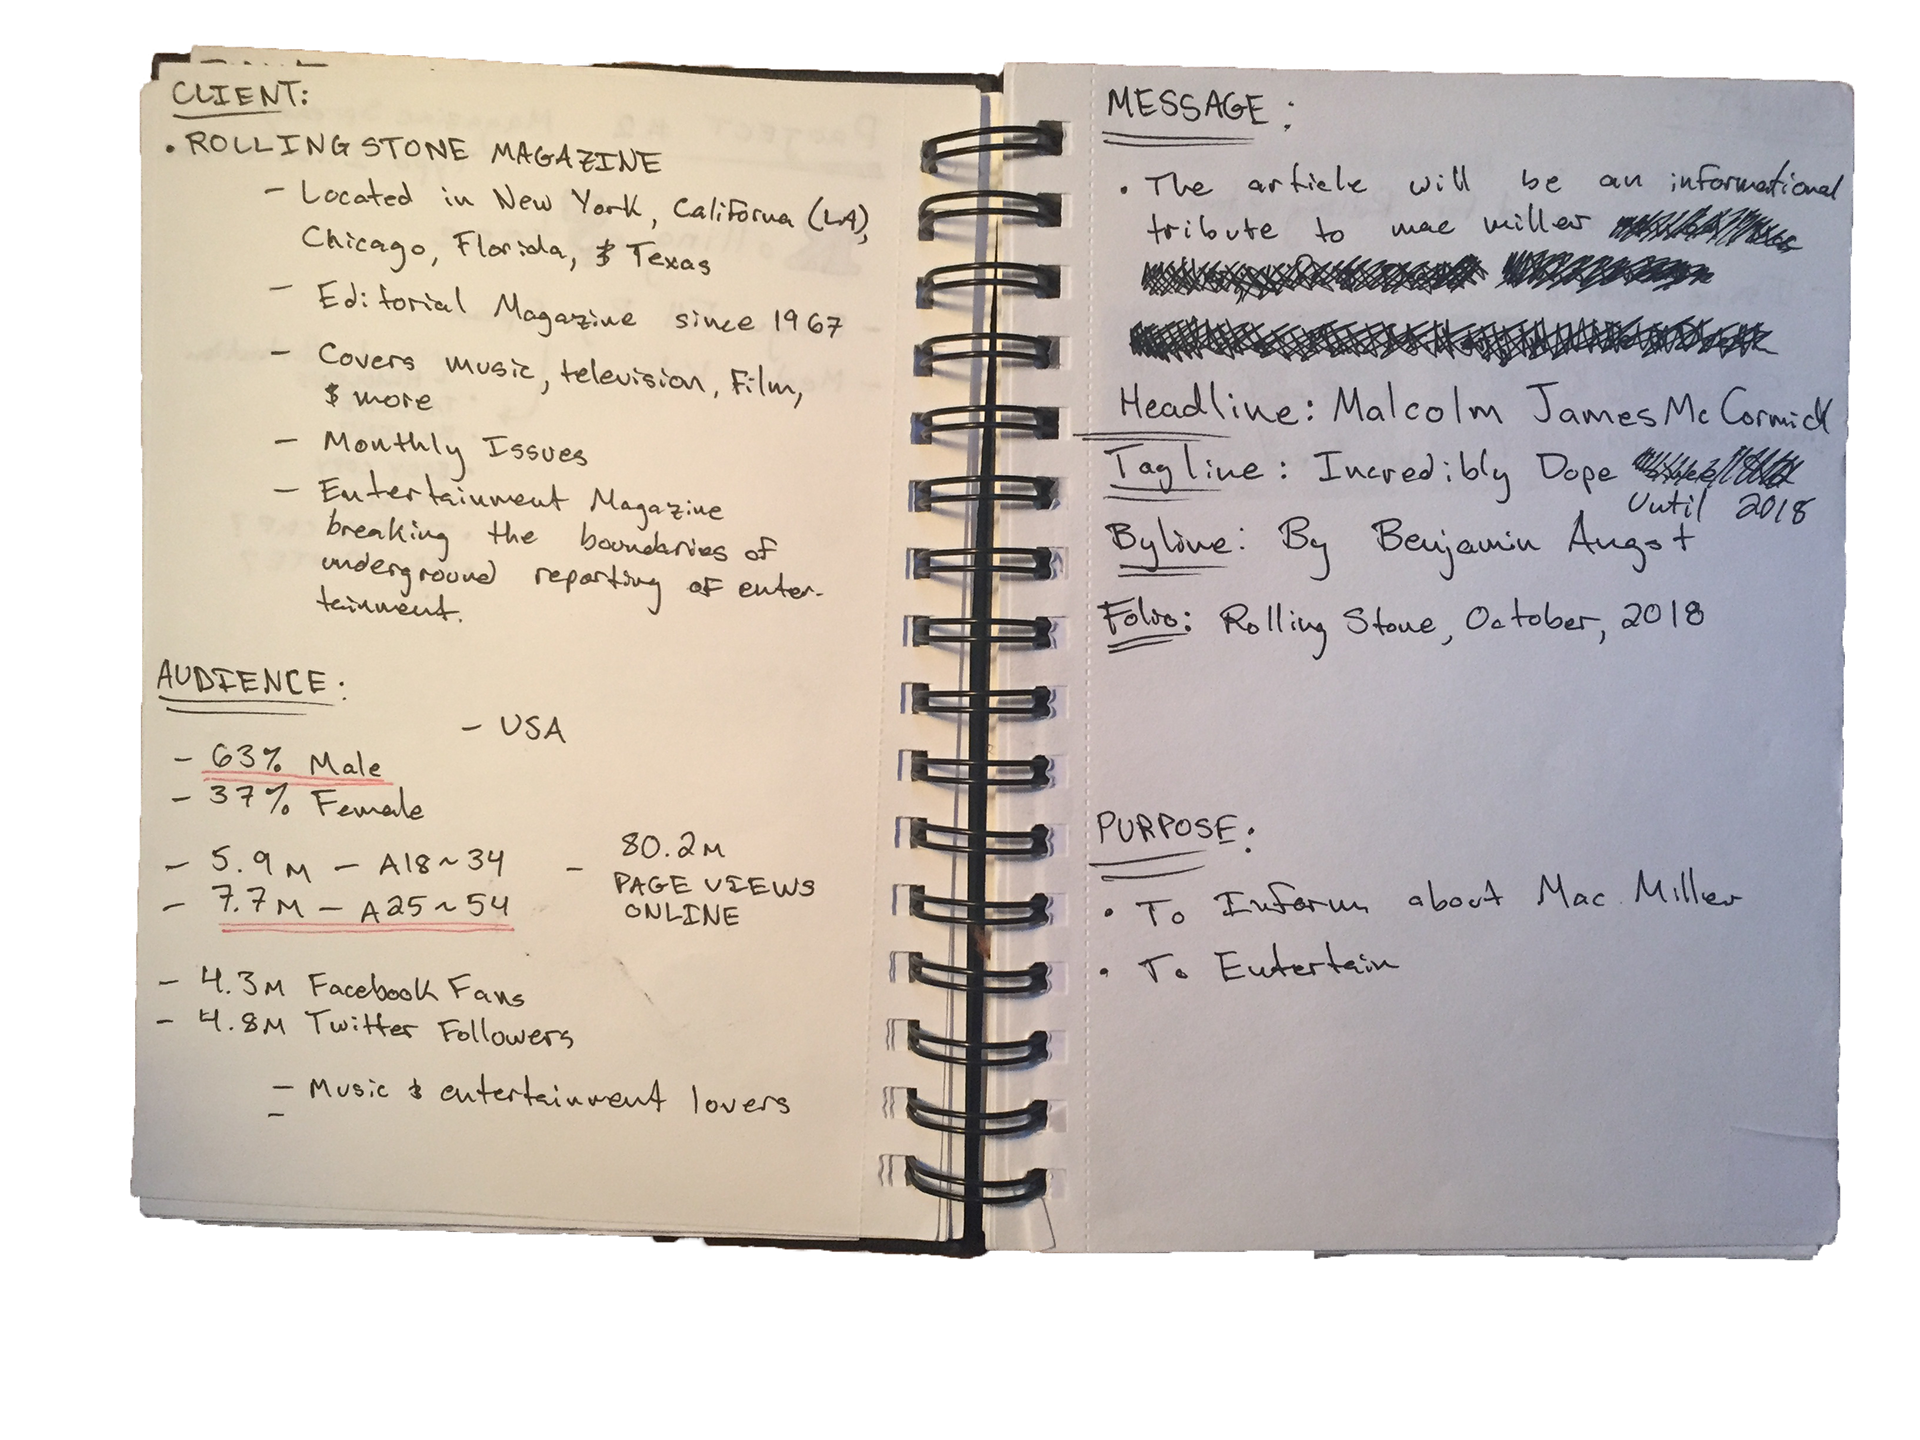 CLIENT:
• ROLLING STONE MAGAZINE
– Located in New York, California (LA),
Chicago, Florida, & Texas
– Editorial Magazine since 1967
– Covers music, television, Film,
& more
– Monthly Issues
– Entertainment Magazine
breaking the boundaries of
underground reporting of enter-
tainment.
AUDIENCE:
– USA
– 63% Male
– 37% Female
– 5.9M – A18~34
– 7.7M – A25~54
– 80.2M
PAGE VIEWS
ONLINE
– 4.3M Facebook Fans
– 4.8M Twitter Followers
– Music & entertainment lovers
–
MESSAGE:
• The article will be an informational
tribute to mac miller
Headline: Malcolm James McCormick
Tagline: Incredibly Dope
Until 2018
Byline: By Benjamin Angst
Folio: Rolling Stone, October, 2018
PURPOSE:
• To Inform about Mac Miller
• To Entertain